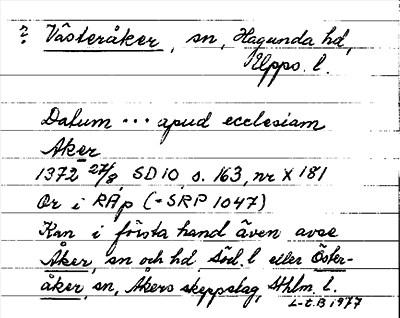 ?: Västeråker, sn, Hagunda hd,
Upps. l.
Datum ... apud ecclesiam
Aker
1372 27/8 SD 10, s. 163, nr X 181
Or i RAp (= SRP 1047)
Kan i första hand även avse
Åker, sn och hd, Södl. l. eller Öster-
åker, sn, Åkers skeppslag, Sthlm. l.
L-t.B 1977